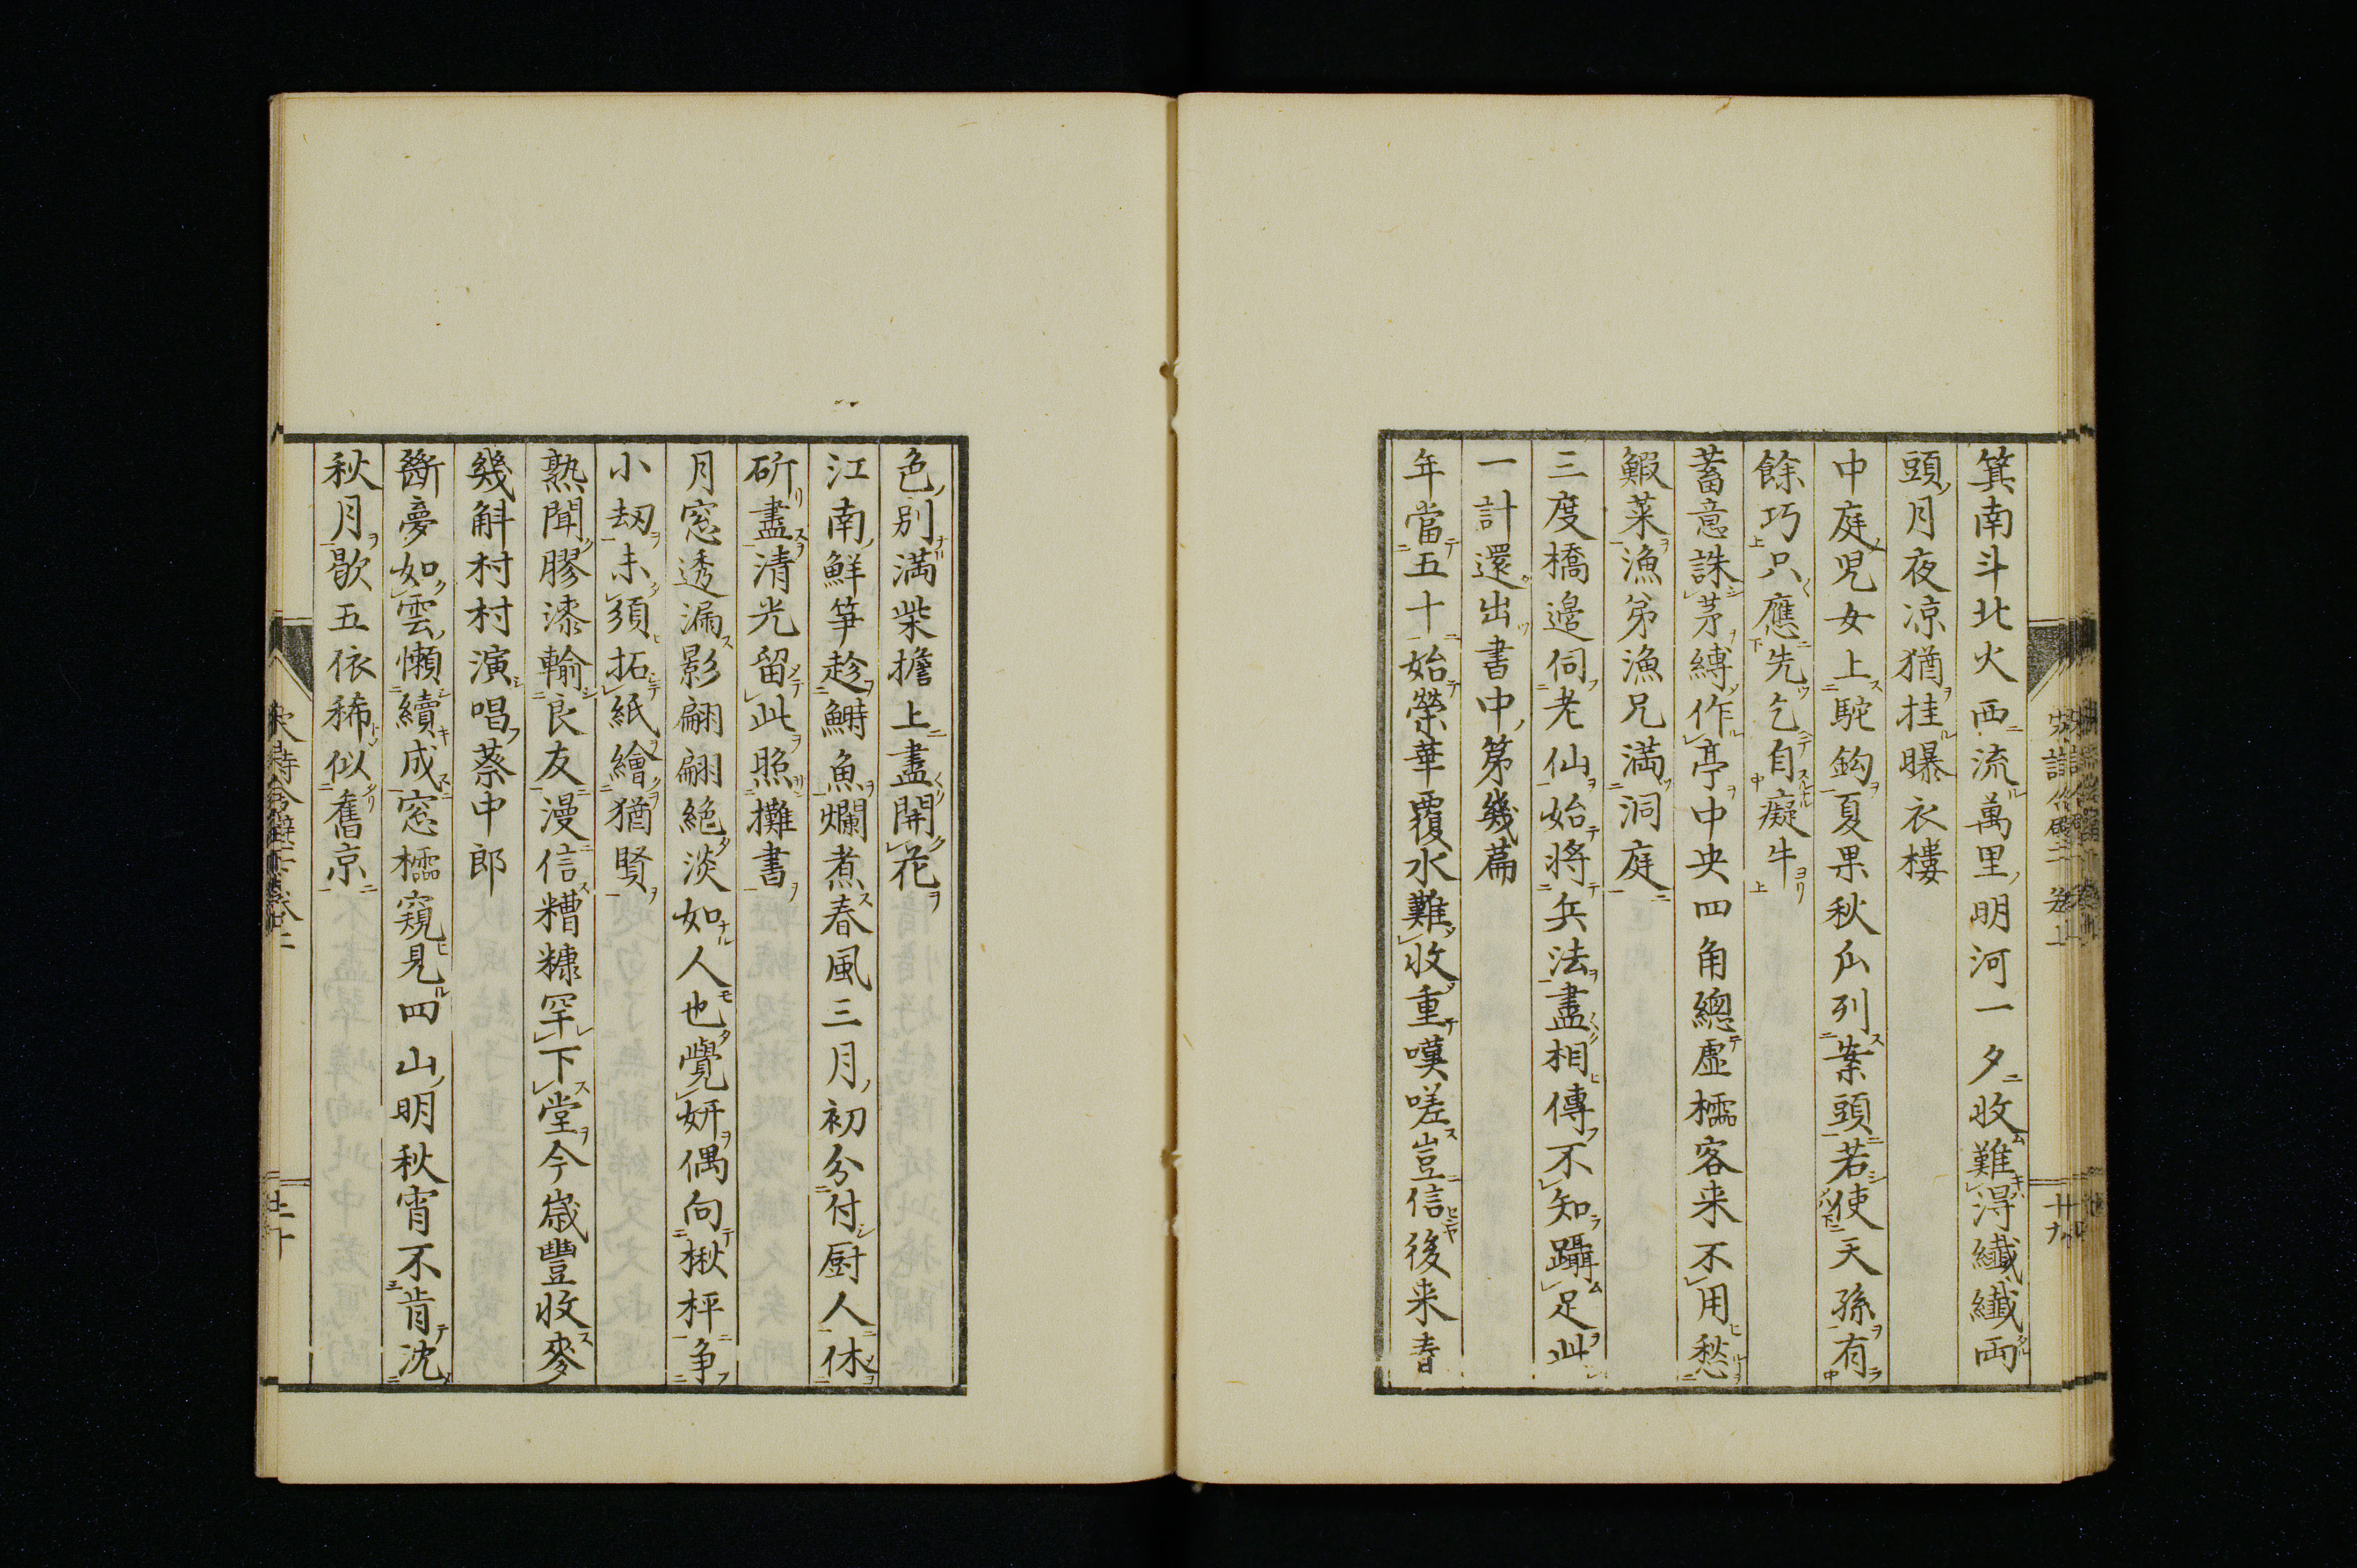 箕南斗北火西流萬里明河一夕收難得纖纖両
頭月夜凉猶挂曝衣樓
中庭児女上駝鈎夏果秋瓜列案頭若使天孫有
餘巧只應先乞自癡牛
蓄意誅茅縛作亭中央四角總虛櫺客来不用愁
鰕菜漁弟漁兄満洞庭
三度橋邉伺老仙始將兵法盡相傳不知躡足此
一計還出書中第幾篇
年當五十始榮華覆水難收重嘆嗟豈信後来春
色別満柴擔上盡開花
江南鮮笋趁鰣魚爛煮春風三月初分付厨人休
斫盡清光留此照攤書
月窓透漏影翩翩絶淡如人也覺妍偶向楸枰争
小刼未須拓紙繪猶賢
熟聞膠漆輸良友漫信糟糠罕下堂今歳豐收麥
幾斛村村演唱蔡中郎
斷夢如雲懶續成窓櫺窺見四山明秋宵不肯沈
秋月歇五依稀似舊京